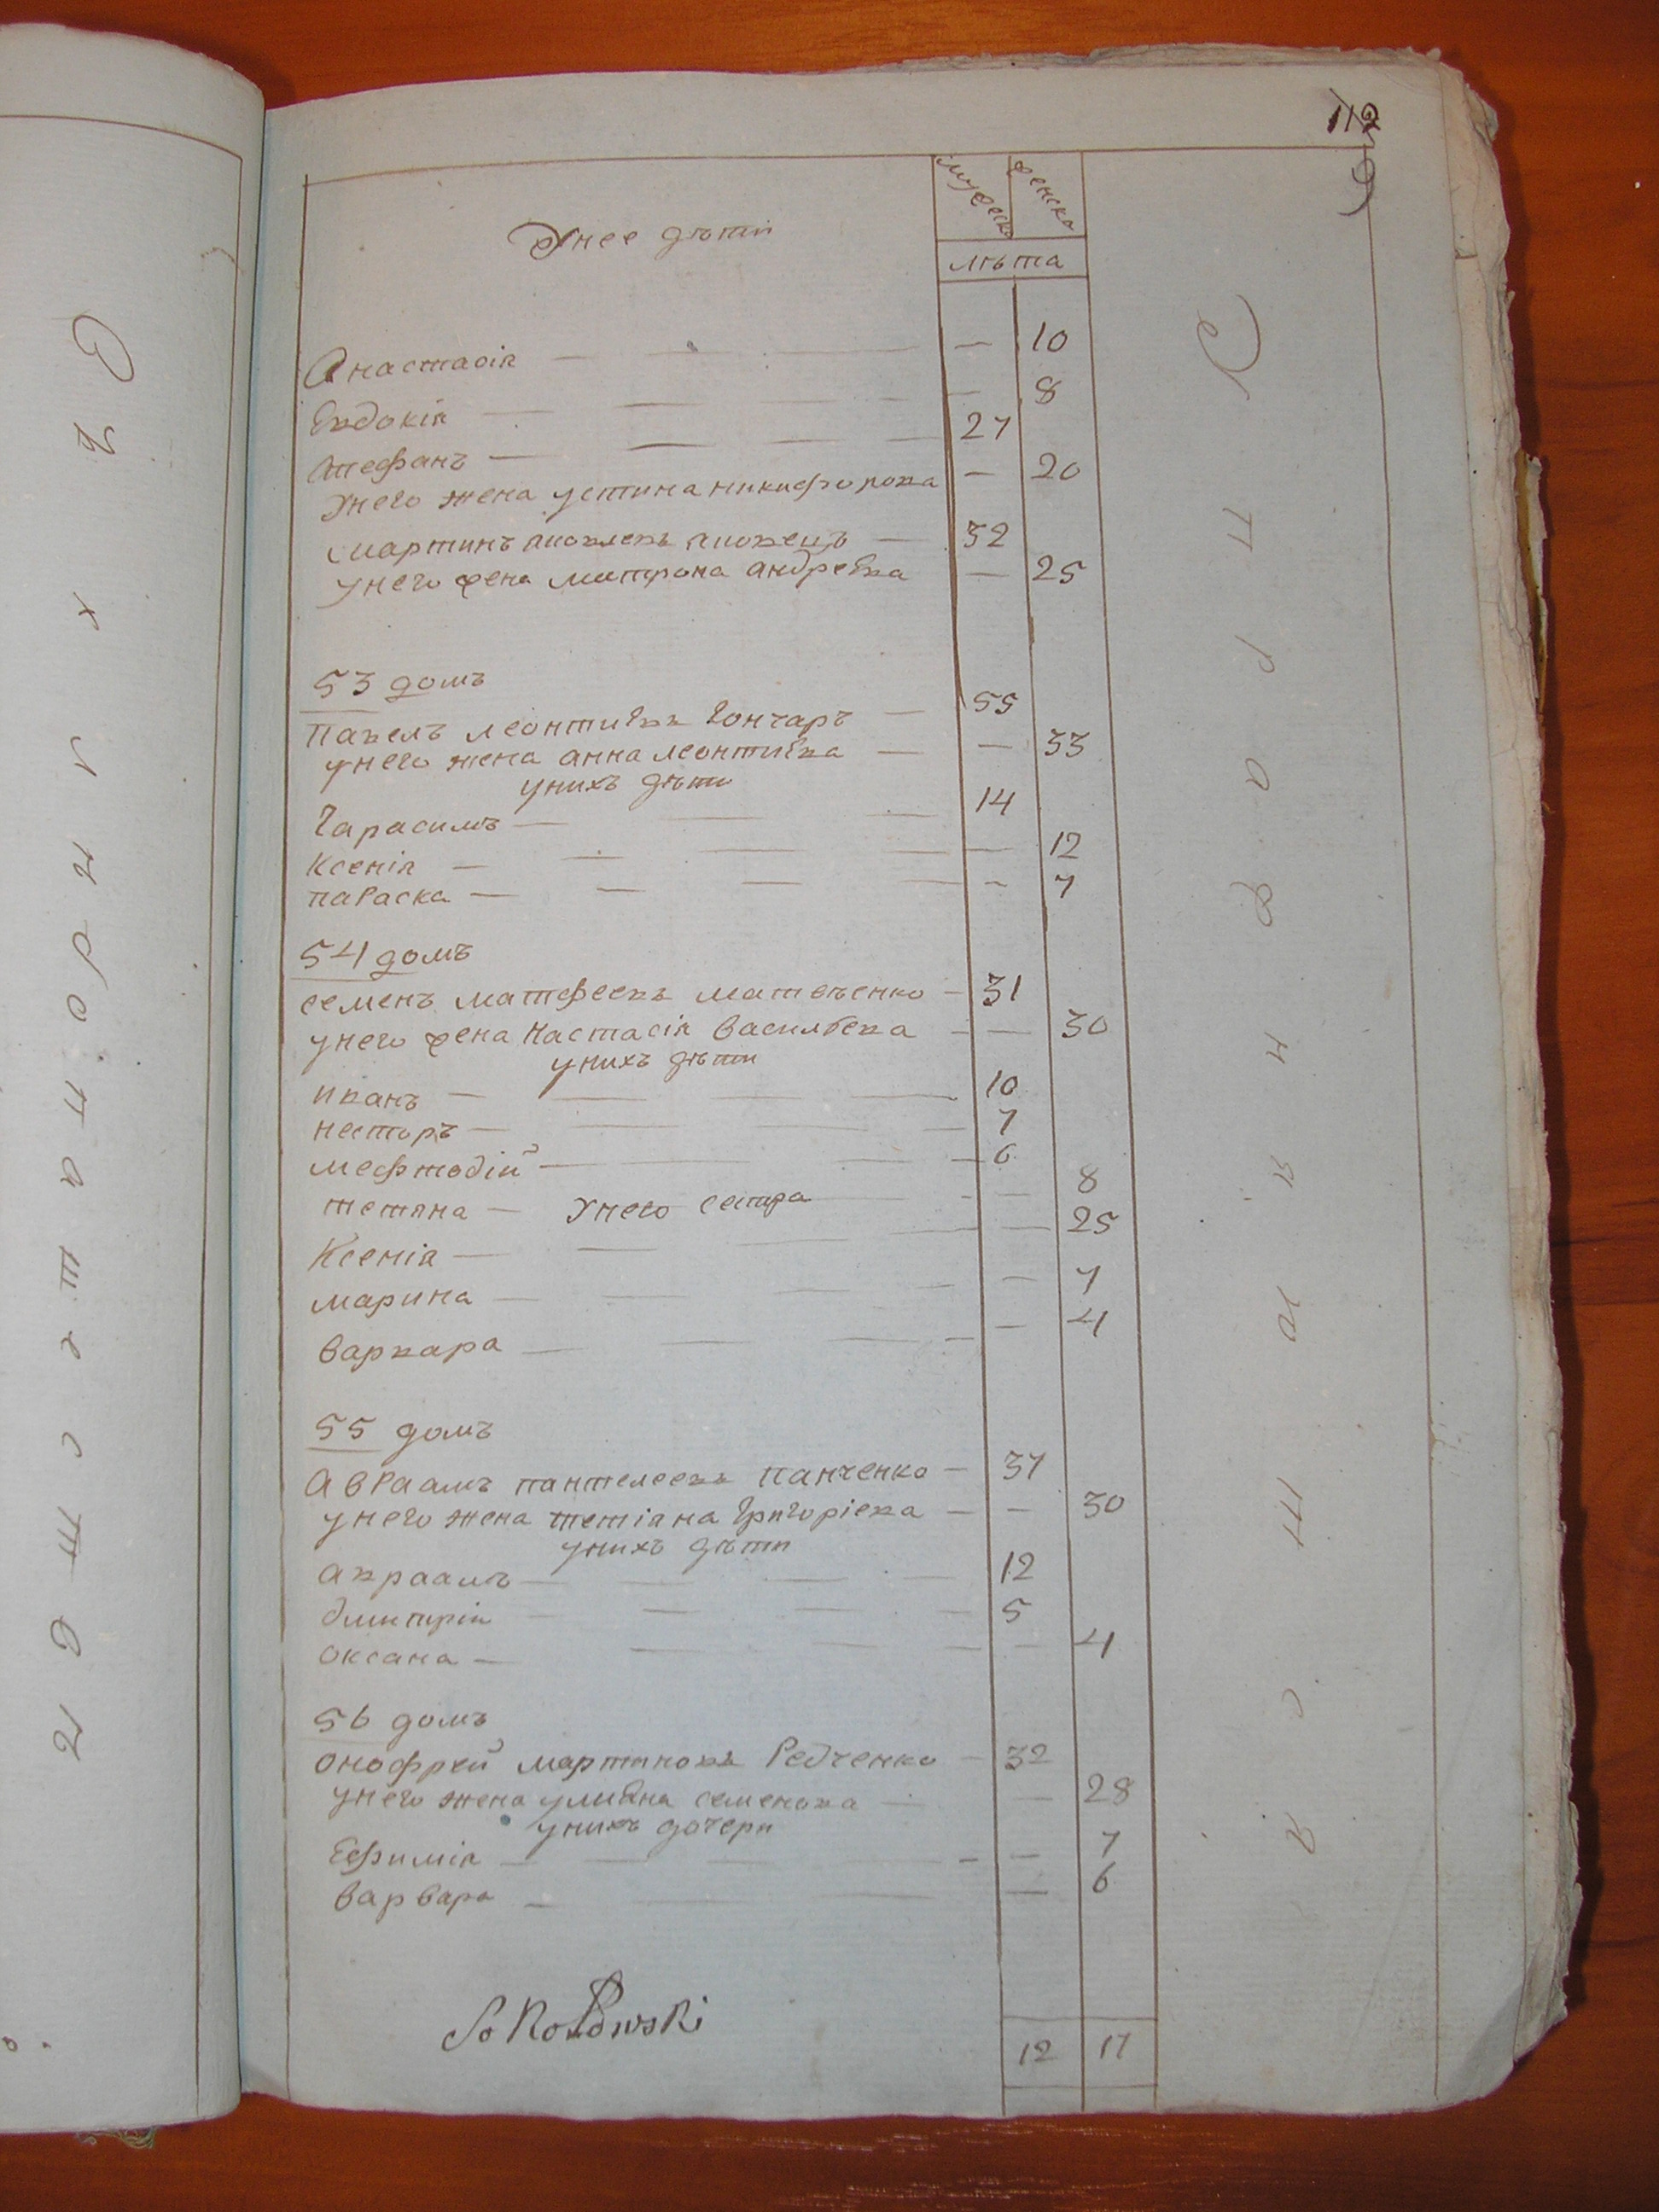 112
мужеска женска
Унее дѣти
лѣта
Анастасія — — 10
Евдокія — — 8
Стефанъ — 27
Унего жена устина никифорова — 20
Мартинъ — 32
унего жена матрона андреева — 25
53 домъ
Павелъ леонтиевъ Гончаръ — 55
унего жена анна леонтиева — — 33
унихъ дѣти
Гарасимъ — 14
Ксенія — — 12
параска — — 7
54 домъ
семенъ матфеевъ матвѣенко — 31
унего жена настасія васильева — — 30
унихъ дѣти
иванъ — 10
несторъ — 7
мефтодій — 6
тетяна — — 8
Унего сестра
Ксенія — — 25
марина — — 7
варвара — — 4
55 домъ
Авраамъ пантелеевъ панченко — 37
унего жена тетіана Григоріева — — 30
унихъ дѣти
авраамъ — 12
дмитрій — 5
оксана — — 4
56 домъ
онофрей мартиновъ Редченко — 32
унего жена улияна семенова — — 28
унихъ дочери
Ефимія — — 7
варвара — — 6
Sokołowski
12 17